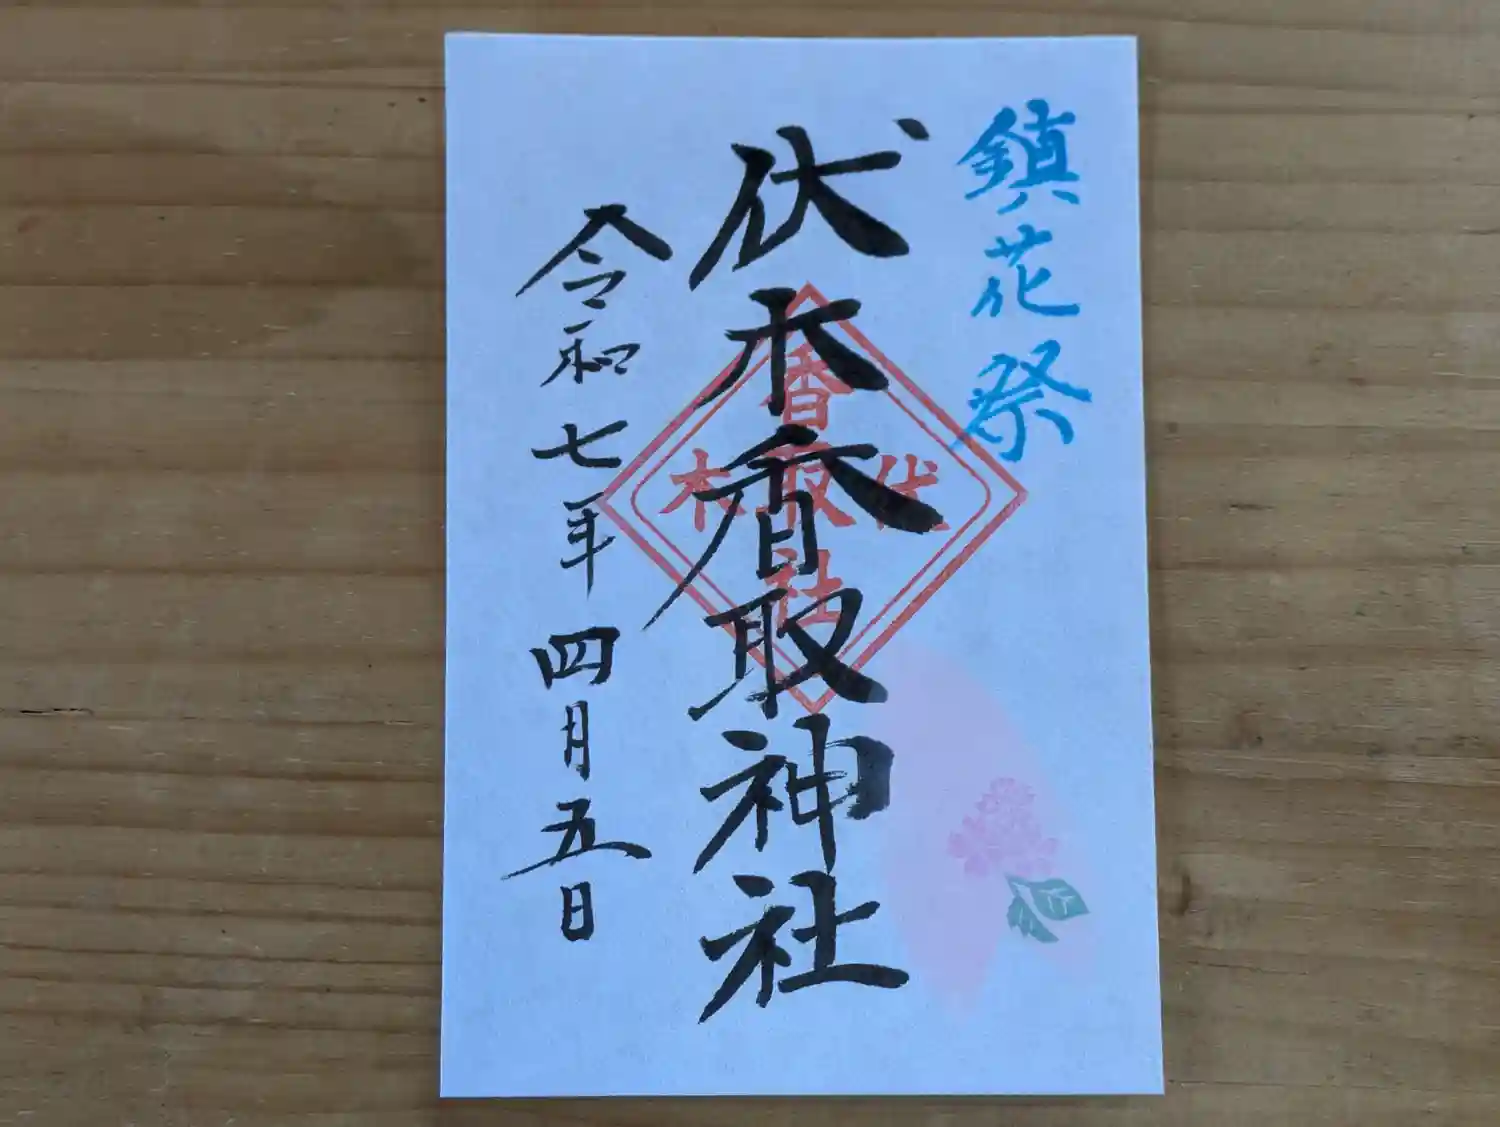 鎮花祭
伏木香取神社
香取社
伏木
令和七年四月五日